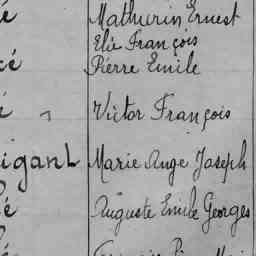 é Mathurin Ernest
Elie François
cé Pierre Emile
é Victor François
igant Marie Ange Joseph
é Auguste Emile Georges